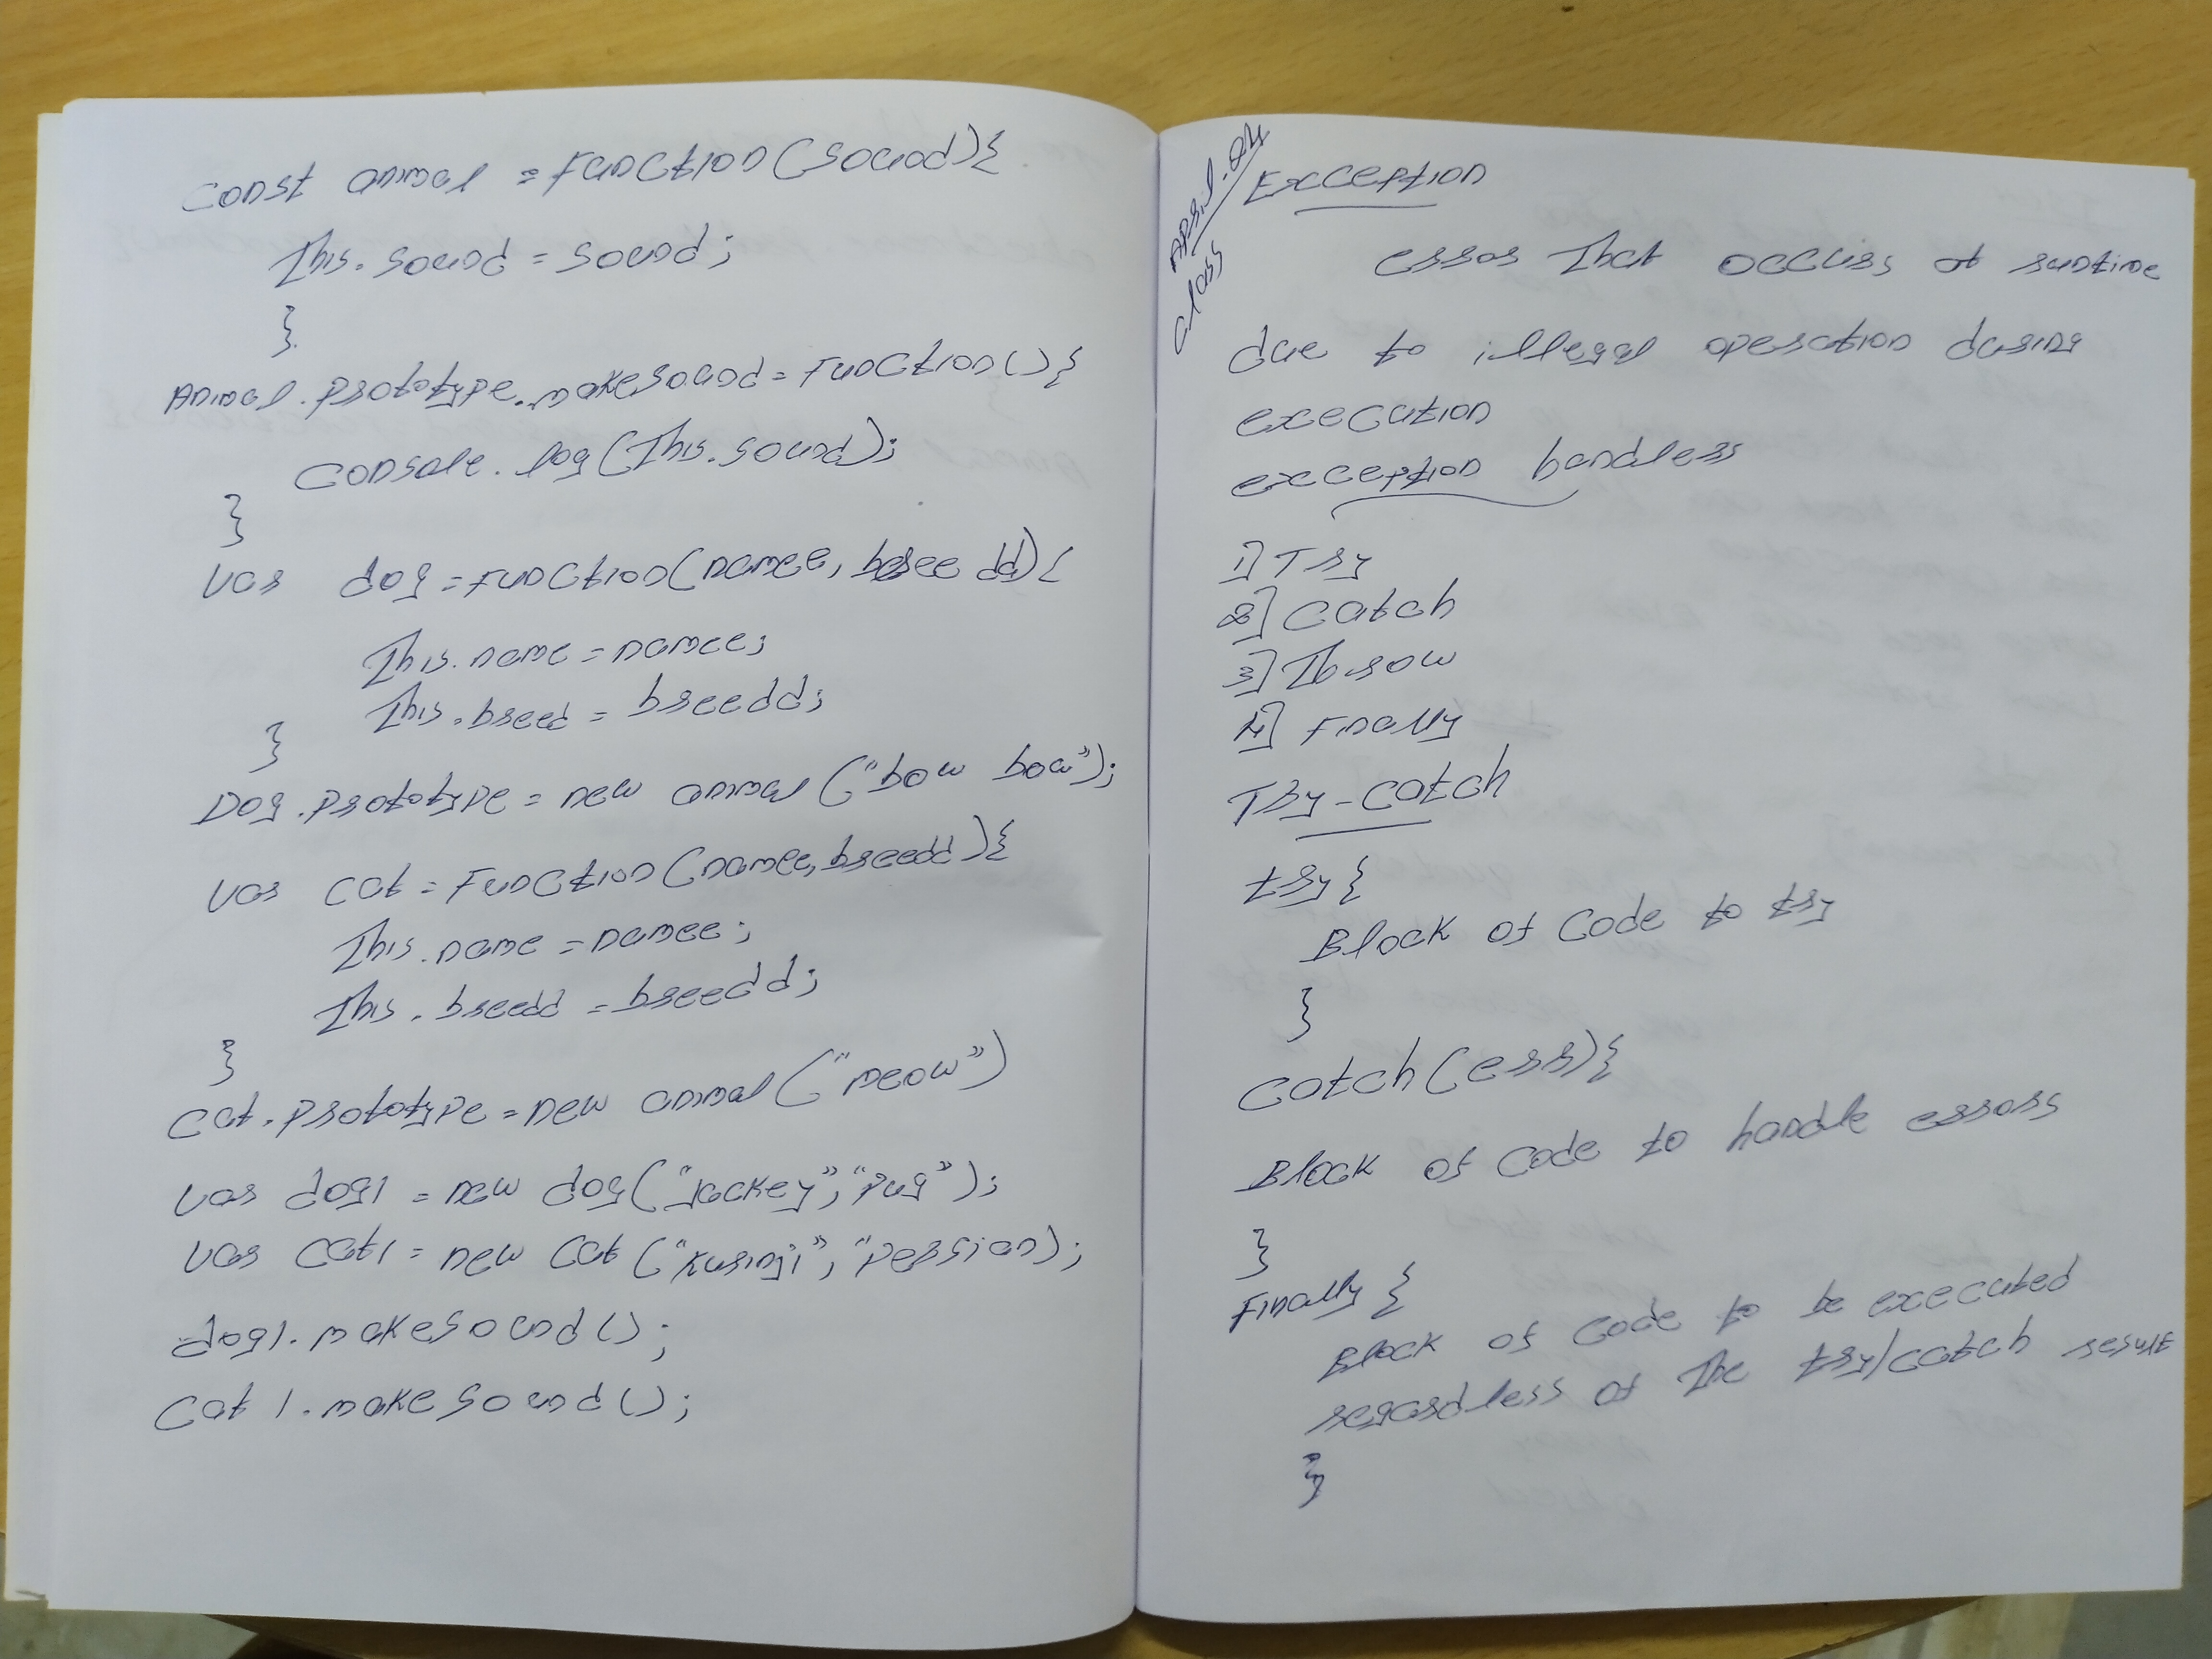 const animal = Function(sound){
This.sound = sound;
}
Animal.prototype.makesound = Function(){
Console.log(This.sound);
}
var dog = Function(namee, breedd){
This.name = namee;
This.breed = breedd;
}
Dog.prototype = new animal("bow bow");
var cat = Function(namee, breedd){
This.name = namee;
This.breedd = breedd;
}
Cat.prototype = new animal("meow")
var dog1 = new dog("jackey", "pug");
var cat1 = new Cat("kurinji", "persian);
dog1.makesound();
Cat1.makesound();
April-04
class
Exception
error That occurs at runtime
due to illegal operation during
execution
exception handlers
1] Try
2] Catch
3] Throw
4] Finally
Try-catch
try{
Block of Code to try
}
catch(err){
Block of Code to handle errors
}
Finally{
Block of Code to be executed
regardless of The try/catch result
}